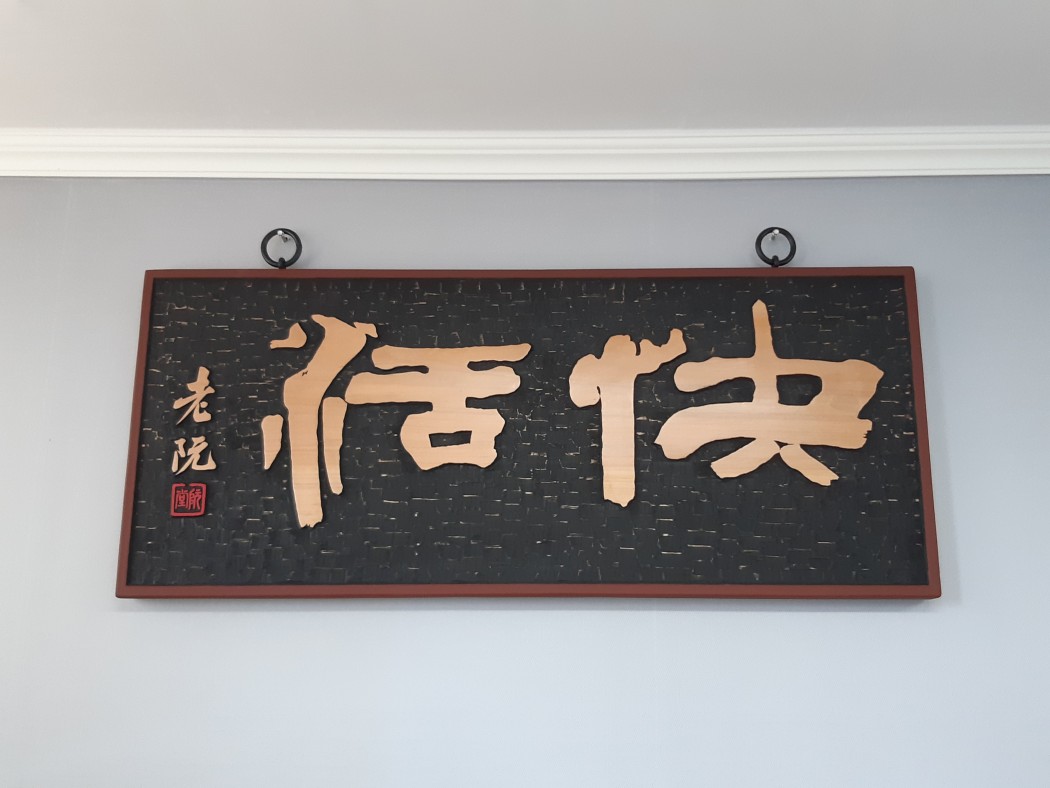 快活
老阮